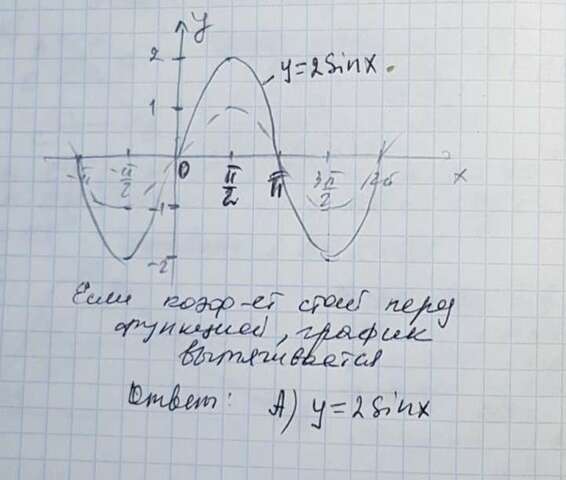 y
2
y=2sinx.
1
-π
-π/2
0
π/2
π
3π/2
2π
x
-1
-2
Если коэф-ет стоит перед
функцией, график
вытягивается
Ответ: А) y=2sinx